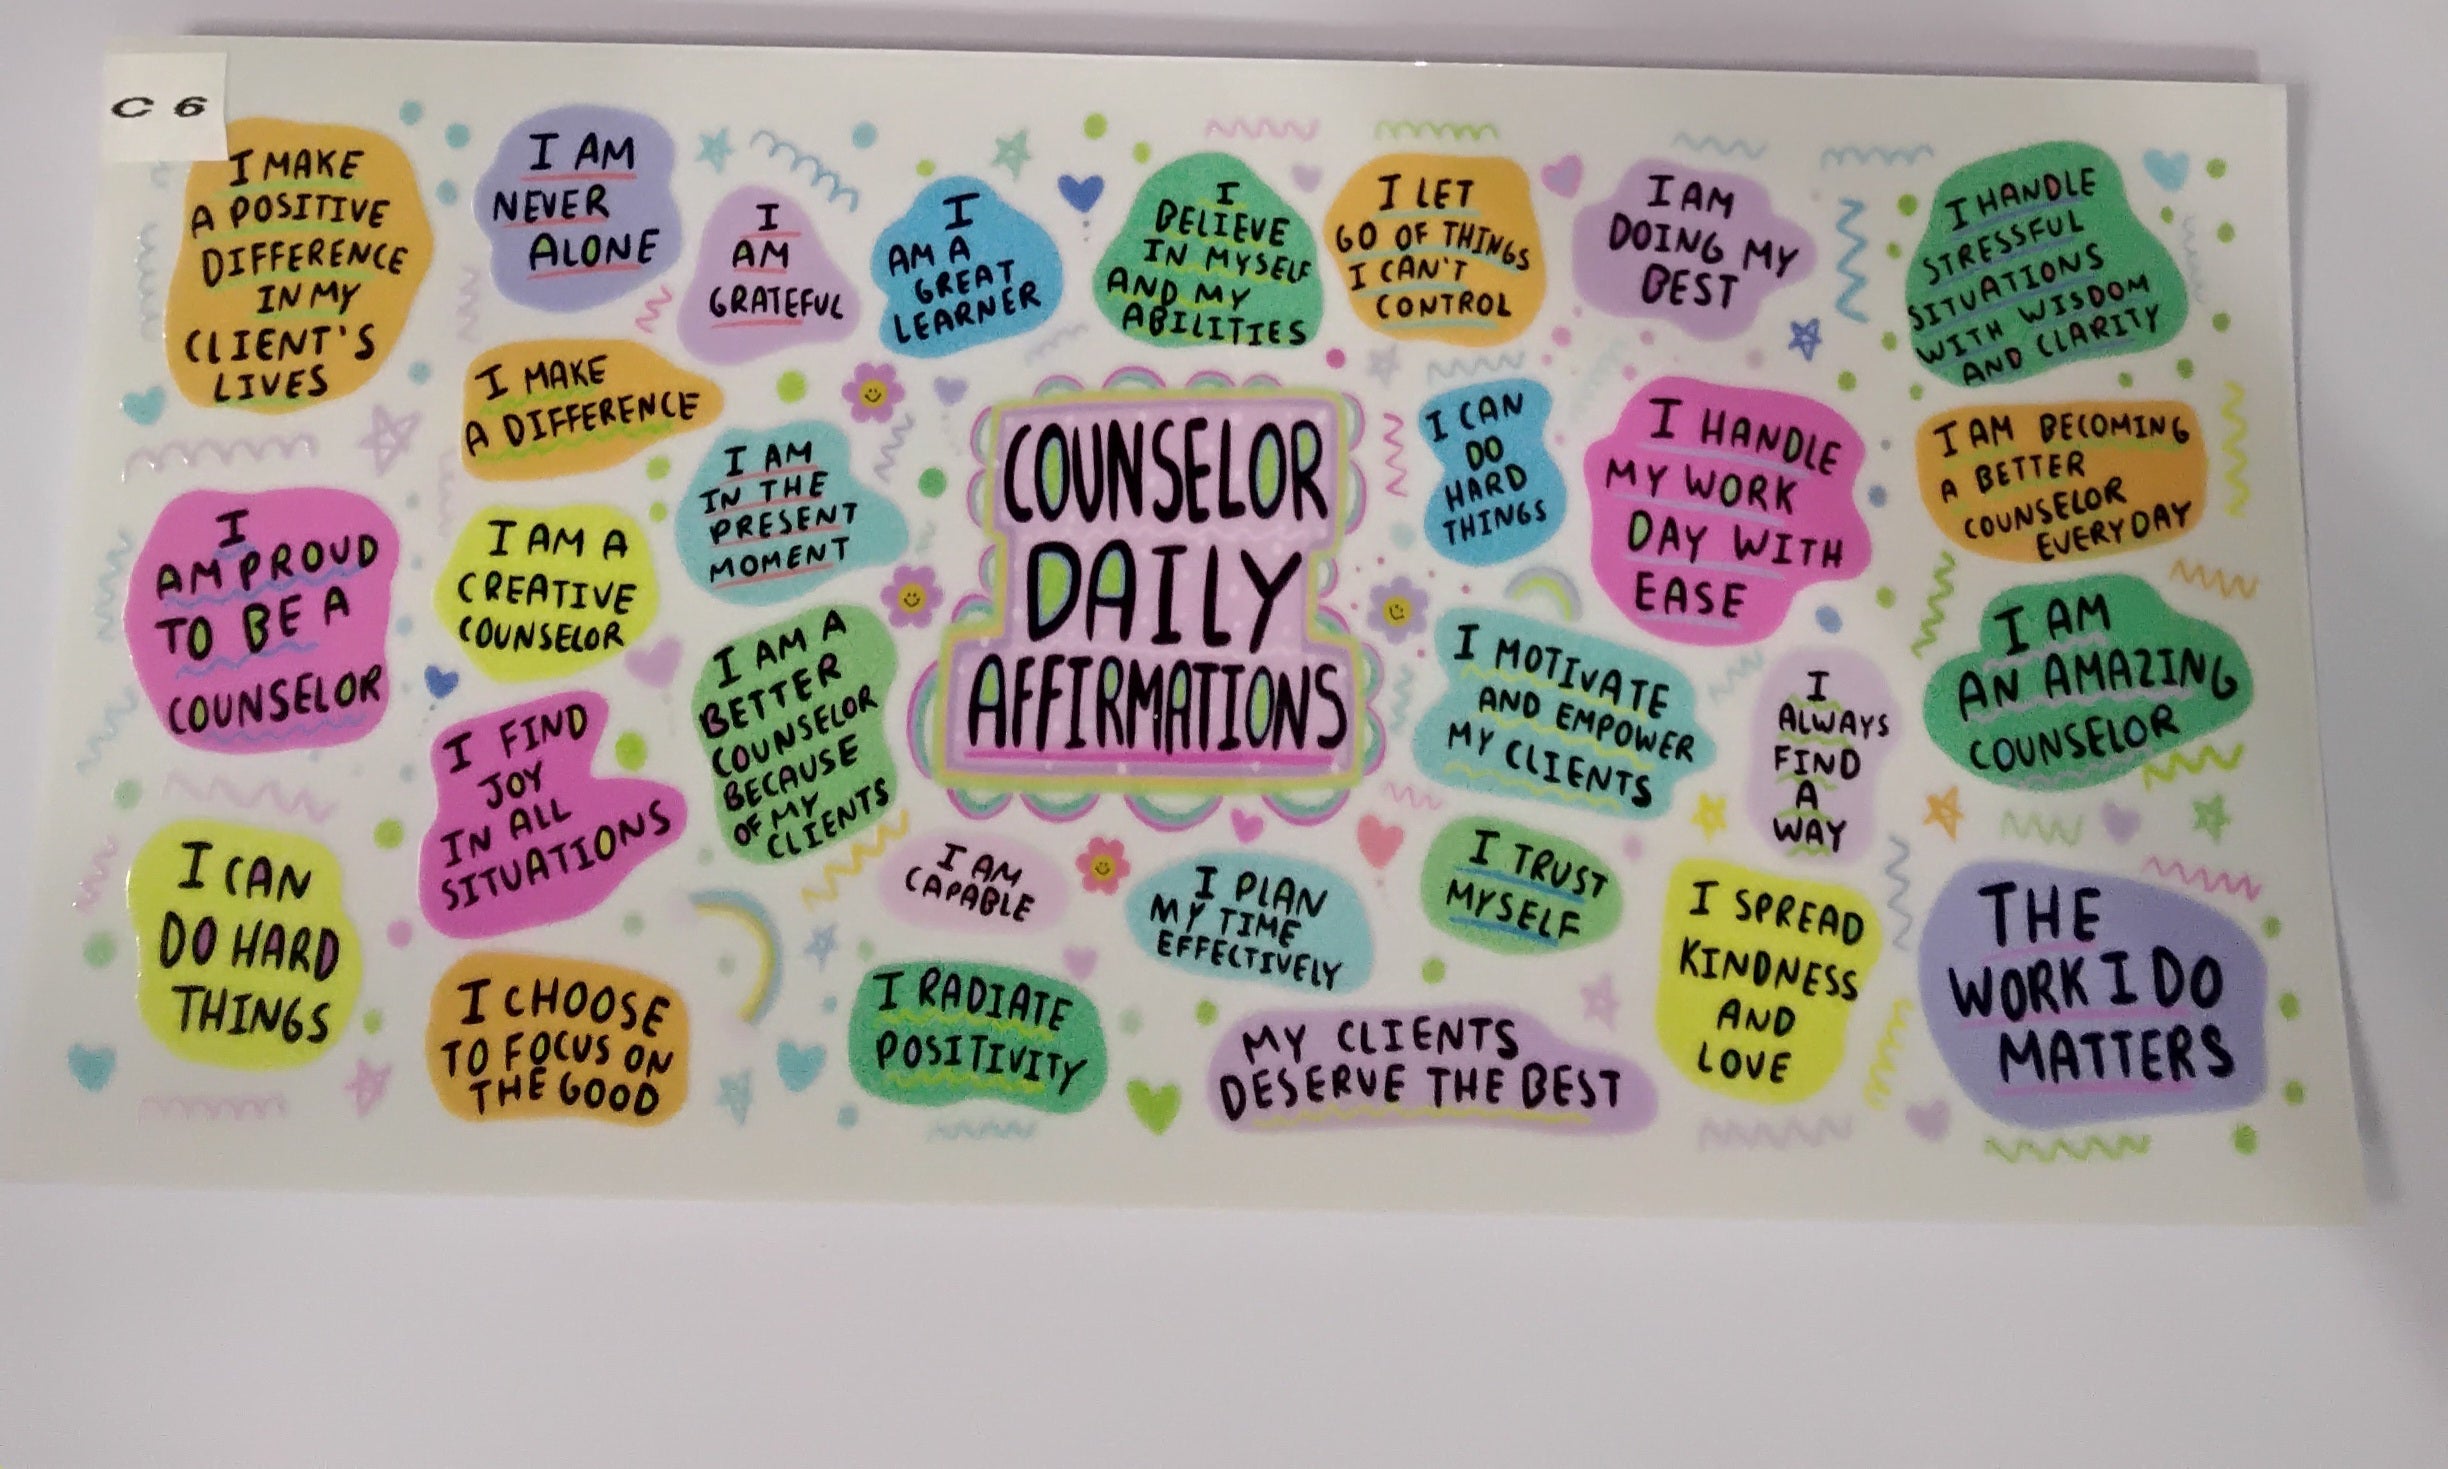 C 6
I MAKE
A POSITIVE
DIFFERENCE
IN MY
CLIENT'S
LIVES
I AM
NEVER
ALONE
I
AM
GRATEFUL
I
AM A
GREAT
LEARNER
I
BELIEVE
IN MYSELF
AND MY
ABILITIES
I LET
GO OF THINGS
I CAN'T
CONTROL
I AM
DOING MY
BEST
I HANDLE
STRESSFUL
SITUATIONS
WITH WISDOM
AND CLARITY
I MAKE
A DIFFERENCE
I AM
IN THE
PRESENT
MOMENT
COUNSELOR
DAILY
AFFIRMATIONS
I CAN
DO
HARD
THINGS
I HANDLE
MY WORK
DAY WITH
EASE
I AM BECOMING
A BETTER
COUNSELOR
EVERYDAY
I
AM PROUD
TO BE A
COUNSELOR
I AM A
CREATIVE
COUNSELOR
I AM A
BETTER
COUNSELOR
BECAUSE
OF MY
CLIENTS
I MOTIVATE
AND EMPOWER
MY CLIENTS
I
ALWAYS
FIND
A
WAY
I AM
AN AMAZING
COUNSELOR
I FIND
JOY
IN ALL
SITUATIONS
I CAN
DO HARD
THINGS
I AM
CAPABLE
I PLAN
MY TIME
EFFECTIVELY
I TRUST
MYSELF
I SPREAD
KINDNESS
AND
LOVE
THE
WORK I DO
MATTERS
I CHOOSE
TO FOCUS ON
THE GOOD
I RADIATE
POSITIVITY
MY CLIENTS
DESERVE THE BEST